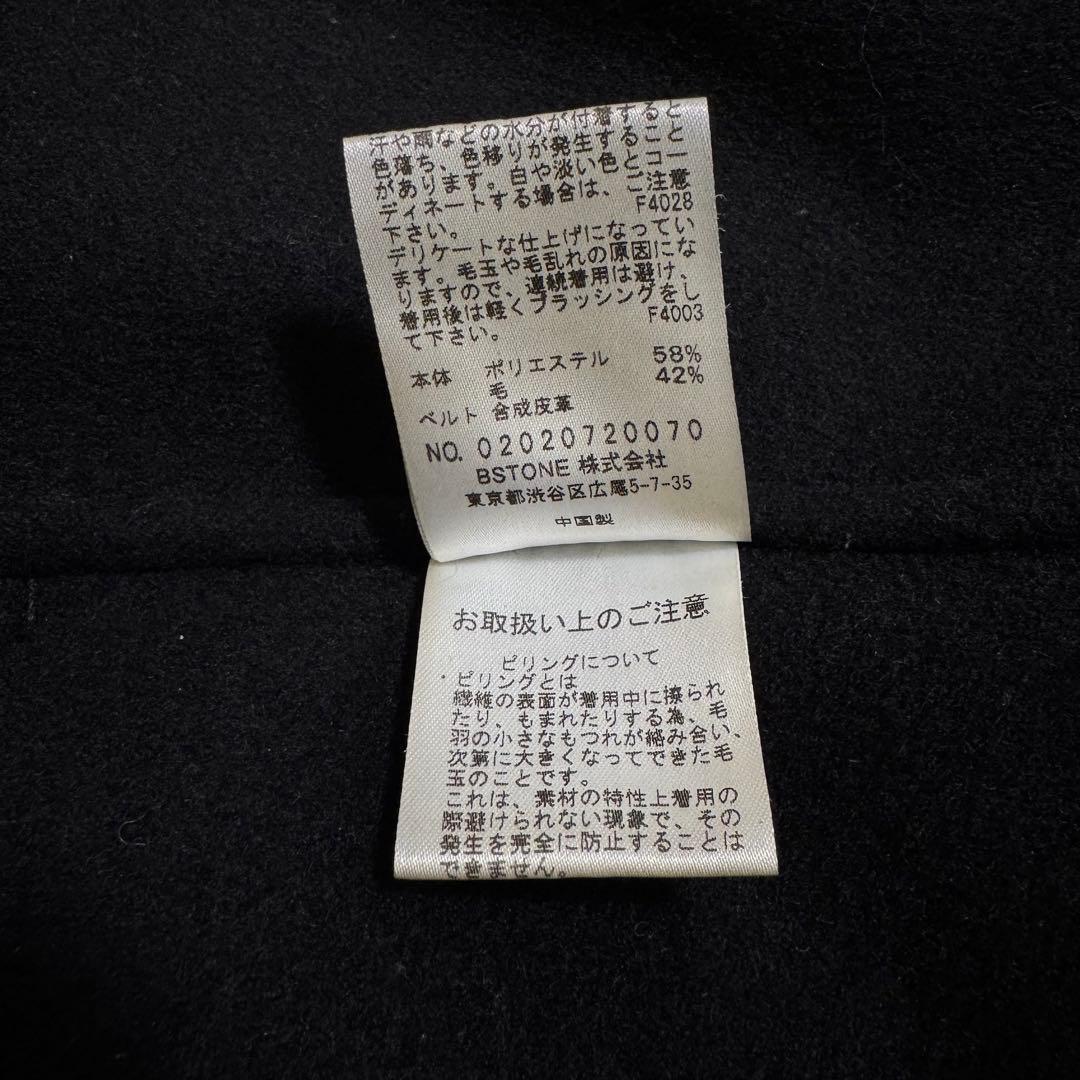 汗や雨などの水分が付着すると
色落ち、色の移りが発生すること
があります。白や淡い色とコー
ディネートする場合は、ご注意
下さい。 F4028
デリケートな仕上げになってい
ます。毛玉や毛乱れの原因にな
りますので、連続着用は避け、
着用後は軽くブラッシングをし
て下さい。 F4003
本体 ポリエステル 58%
毛 42%
ベルト 合成皮革
NO. 02020720070
BSTONE 株式会社
東京都渋谷区広尾5-7-35
中国製
お取扱い上のご注意
ピリングについて
・ピリングとは
繊維の表面が着用中に擦られ
たり、もまれたりする為、毛
羽の小さなもつれが絡み合い、
次第に大きくなってできた毛
玉のことです。
これは、素材の特性上着用の
際避けられない現象で、その
発生を完全に防止することは
できません。